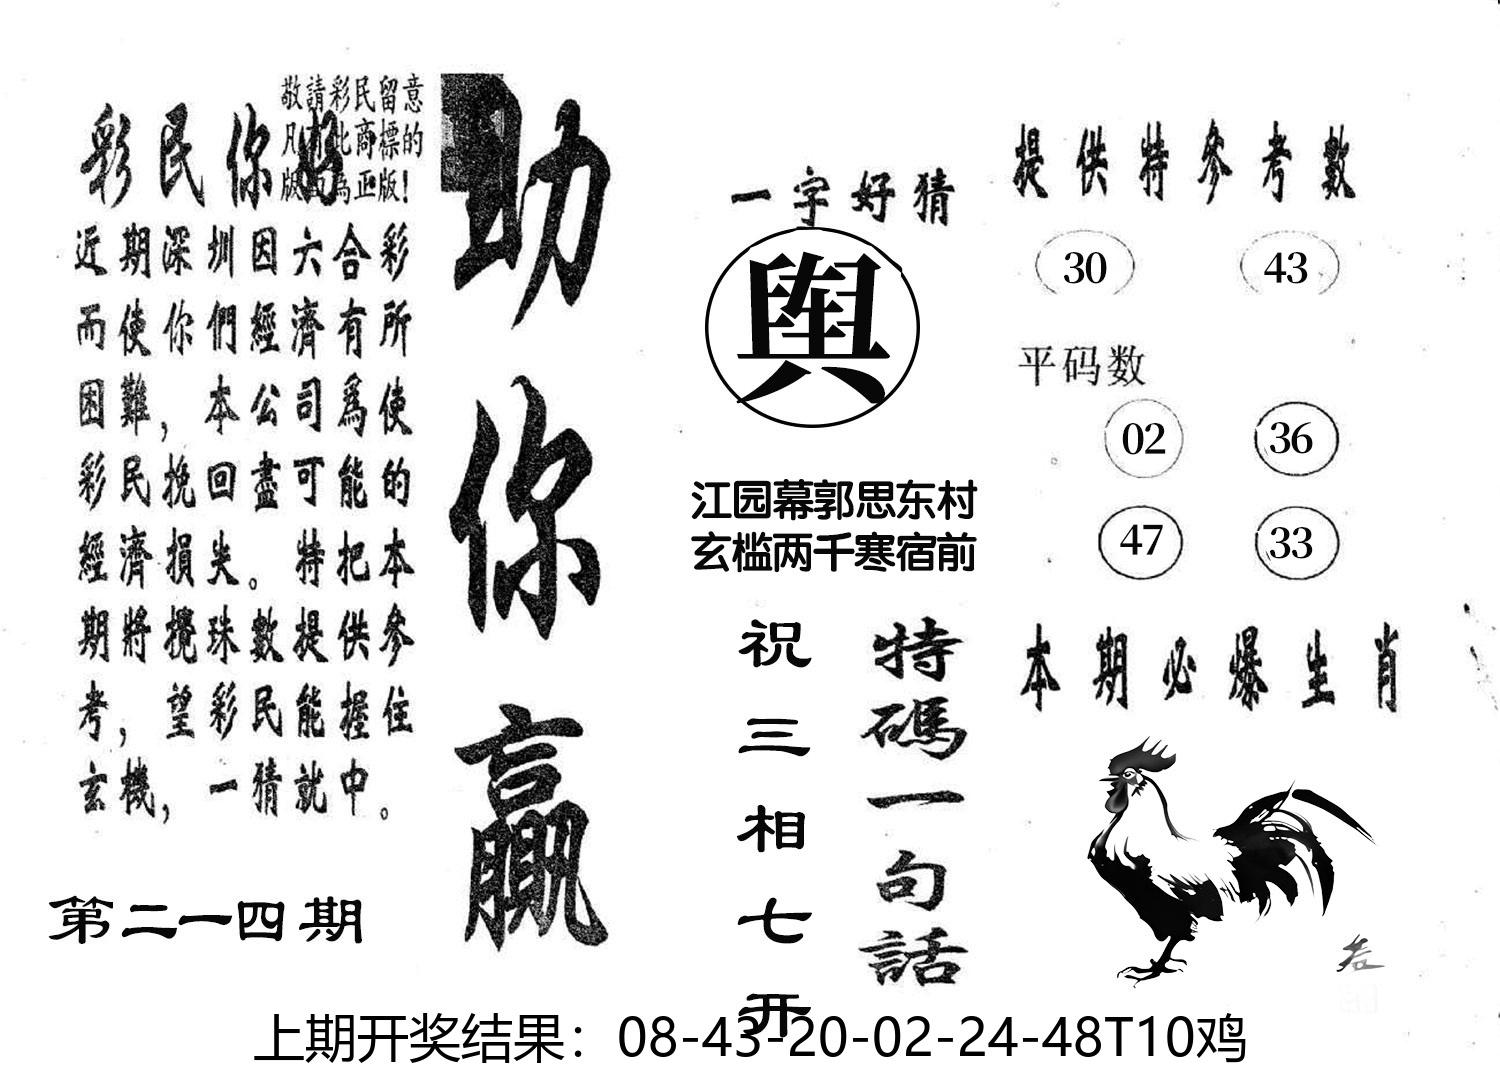 敬請彩民留意
凡有此商標的
版面為正版！
彩民你好
近期深圳因六合彩
而使你們經濟有所
困難，本公司爲使
彩民挽回盡可能的
經濟損失。特把本
期將攪珠數提供參
考，望彩民能握住
玄機，一猜就中。
第二一四期
助你贏
一字好猜
舆
江园幕郭思东村
玄槛两千寒宿前
祝三相七开
特碼一句話
提供特參考數
30 43
平码数
02 36
47 33
本期必爆生肖
上期开奖结果：08-43-20-02-24-48T10鸡